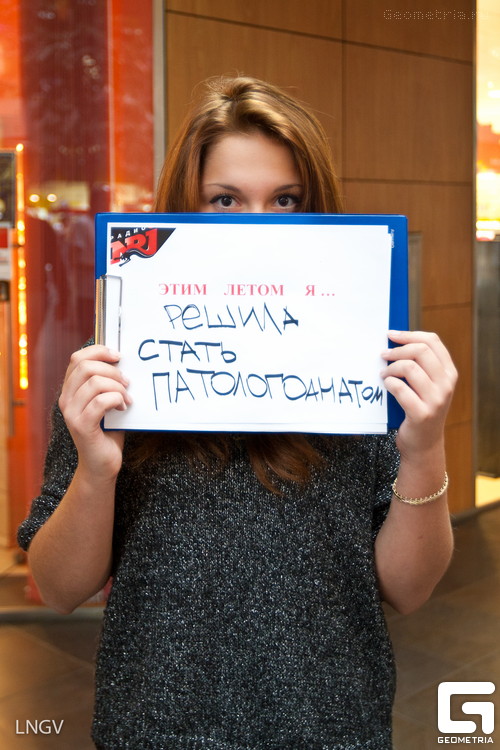 Geometria.ru
РАДИО
NRJ
ЭТИМ ЛЕТОМ Я...
РЕШИЛА
СТАТЬ
ПАТОЛОГОАНАТОМ
LNGV
GEOMETRIA